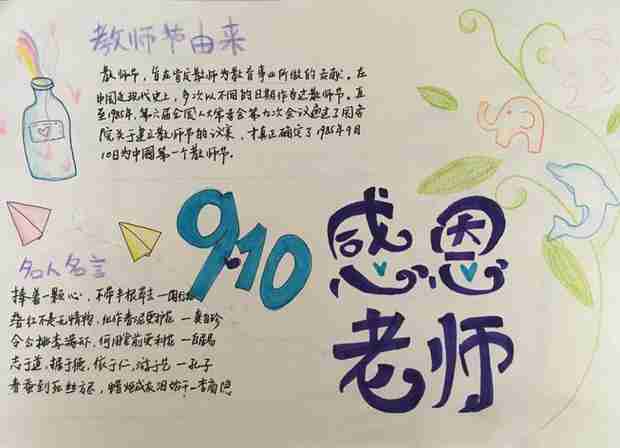 教师节由来
教师节，旨在肯定教师为教育事业所做的贡献。在
中国近现代史上，多次以不同的日期作为过教师节。直
至1985年，第六届全国人大常委会第九次会议通过了国务
院关于建立教师节的议案，才真正确定了1985年9月
10日为中国第一个教师节。
9.10
感恩
老师
名人名言
捧着一颗心，不带半根草去
落红不是无情物，化作春泥更护花 —龚自珍
令公桃李满天下，何用堂前更种花 —白居易
志于道，据于德，依于仁，游于艺 —孔子
春蚕到死丝方尽，蜡炬成灰泪始干 —李商隐